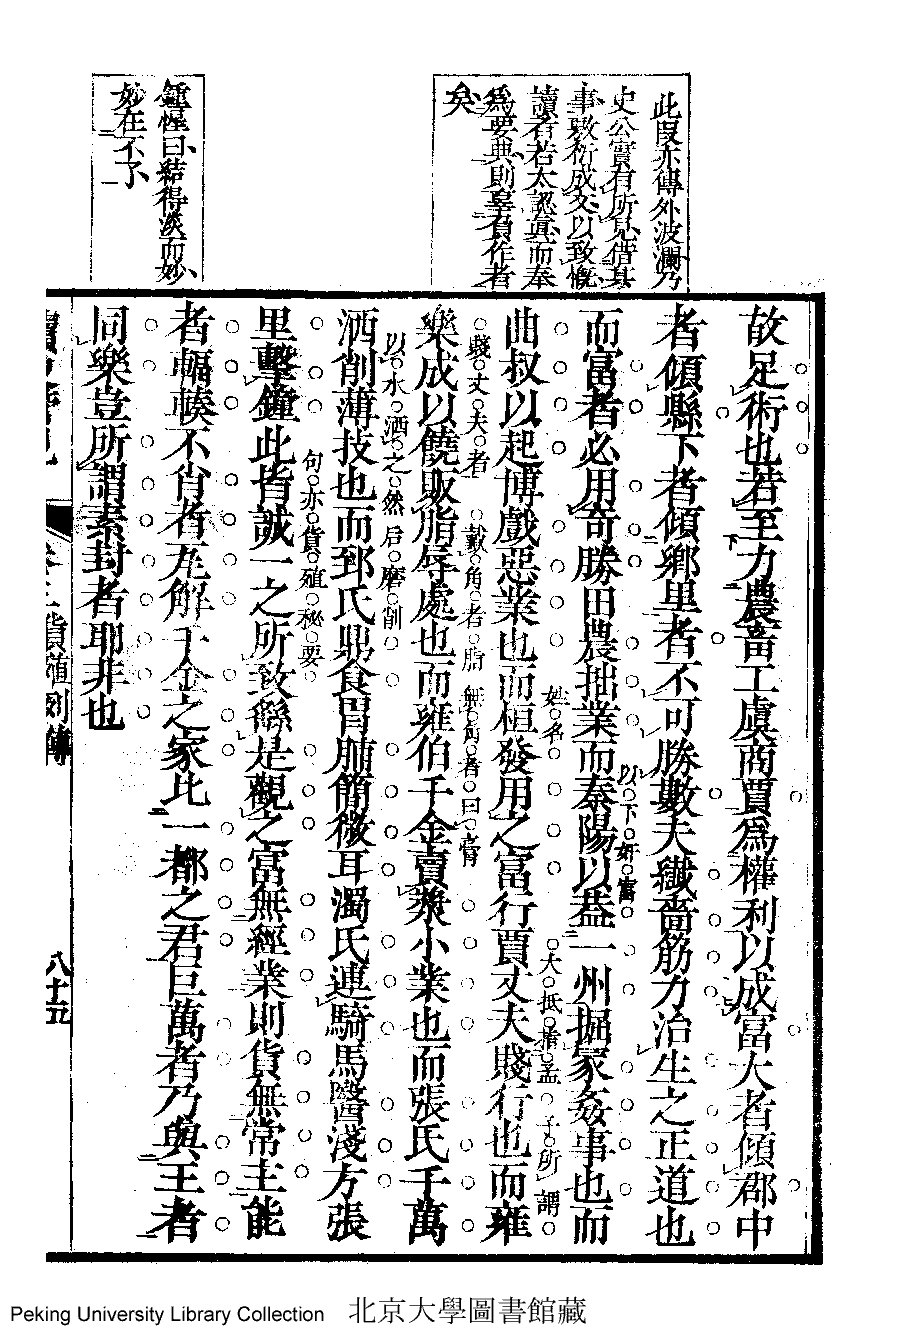 此段亦傳外波瀾乃
史公實有所見借其
事敷衍成文以致慨
讀者若太認眞而奉
爲要典則辜負作者
矣
鍾惺曰結得淡而妙
妙在不了
故足術也若至力農畜工虞商賈爲權利以成富大者傾郡中
者傾縣下者傾鄉里者不可勝數夫纖嗇筋力治生之正道也
而富者必用奇勝田農拙業而秦陽以葢一州掘冢姦事也而
以下奸富
大抵猶孟子所謂
曲叔以起博戲惡業也而桓發用之富行賈丈夫賤行也而雍
姓名
樂成以饒販脂辱處也而雍伯千金賣漿小業也而張氏千萬
賤丈夫者
戴角者脂無角者曰膏
洒削薄技也而郅氏鼎食胃脯簡微耳濁氏連騎馬醫淺方張
以水洒之然后磨削
里擊鐘此皆誠一之所致繇是觀之富無經業則貨無常主能
句亦貨殖秘要
者輻輳不肖者瓦解千金之家比一都之君巨萬者乃與王者
同樂豈所謂素封者耶非也
貨殖列傳
八十五
Peking University Library Collection 北京大學圖書館藏